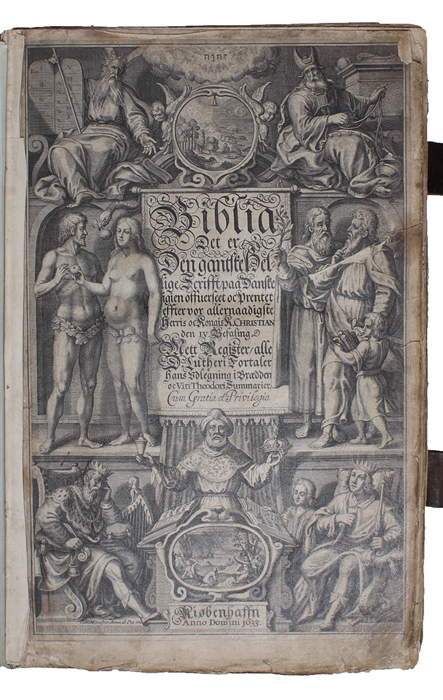 יהוה
Biblia
Det er
Den gantske Hel-
lige Scrifft, paa Danske
igien offuerseet oc Prentet
effter vor allernaadigste
Herris oc Kongis K. CHRISTIAN
den IV Befaling.
Mett Register, alle
D. Lutheri Fortaler
hans Vdlegning i Brædden
oc Viti Theodori Summarier.
Cum Gratia et Privilegio.
Kiøbenhaffn
Anno Domini 1633.